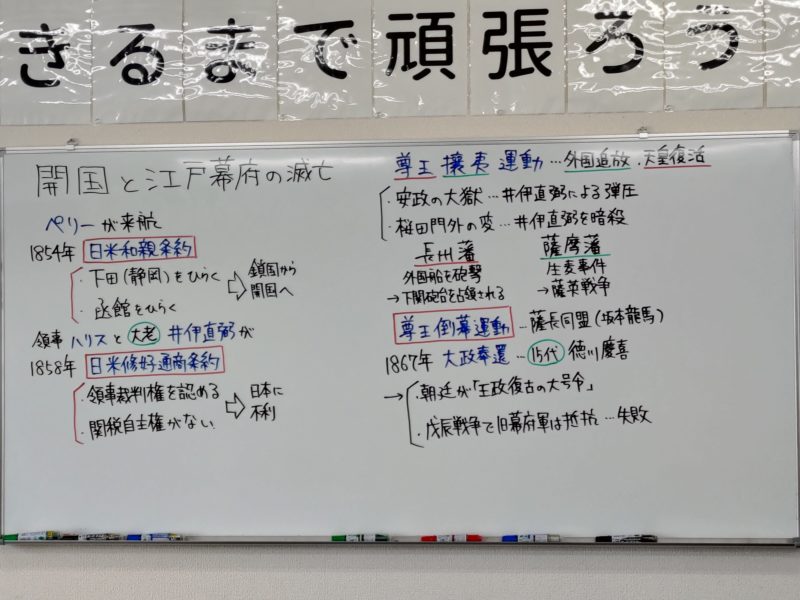 きるまで頑張ろう
開国と江戸幕府の滅亡
ペリーが来航
1854年 日米和親条約
・下田(静岡)をひらく
・函館をひらく
⇨ 鎖国から
開国へ
領事 ハリスと 大老 井伊直弼が
1858年 日米修好通商条約
・領事裁判権を認める
・関税自主権がない
⇨ 日本に
不利
尊王 攘夷 運動 …外国追放・天皇復活
・安政の大獄…井伊直弼による弾圧
・桜田門外の変…井伊直弼を暗殺
長州藩
外国船を砲撃
→下関砲台を占領される
薩摩藩
生麦事件
→薩英戦争
尊王倒幕運動…薩長同盟(坂本龍馬)
1867年 大政奉還…15代 徳川慶喜
→・朝廷が「王政復古の大号令」
・戊辰戦争で旧幕府軍は抵抗…失敗